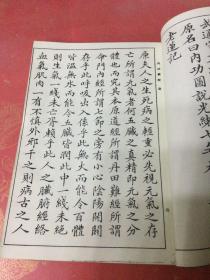 武進
原名曰内功圖說光緒七年
書蓮記
原夫人之生死病之輕重必先視元氣之存
亡所謂元氣者何五臟之真精即元氣之分
體也而究其本原道經所謂丹田難經所謂
命門内經所謂七節之旁有小心陰陽開闢
存乎此呼吸出入係乎此無火而能令百體
皆温無水而能令五臟皆潤此中一綫未絶
則生氣一綫未亡胥賴乎此人之臟腑經絡
血氣肌肉一有不慎外邪干之則病古之人